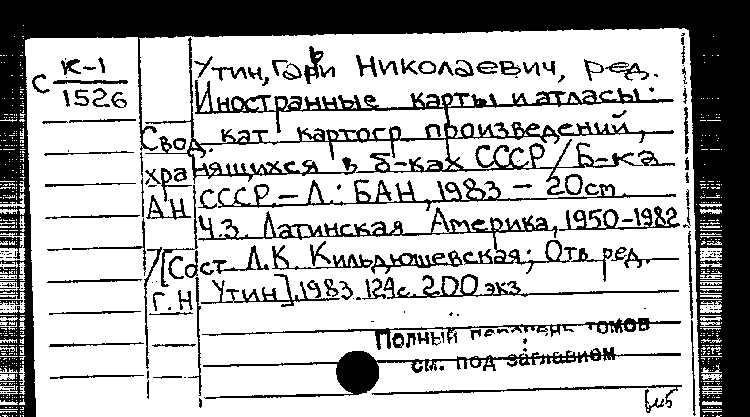 К-1
С 1526
Утин, Гарри Николаевич, ред.
Иностранные карты и атласы:
Свод. кат картогр произведений,
хранящихся в б-ках СССР / Б-ка
АН СССР. – Л.: БАН, 1983 – 20cm
Ч.3. Латинская Америка, 1950-1982.
/[Сост Л.К. Кильдюшевская; Отв ред.
Г.Н. Утин]. 1983. 124с. 200 экз
Полный перечень томов
см. под заглавием